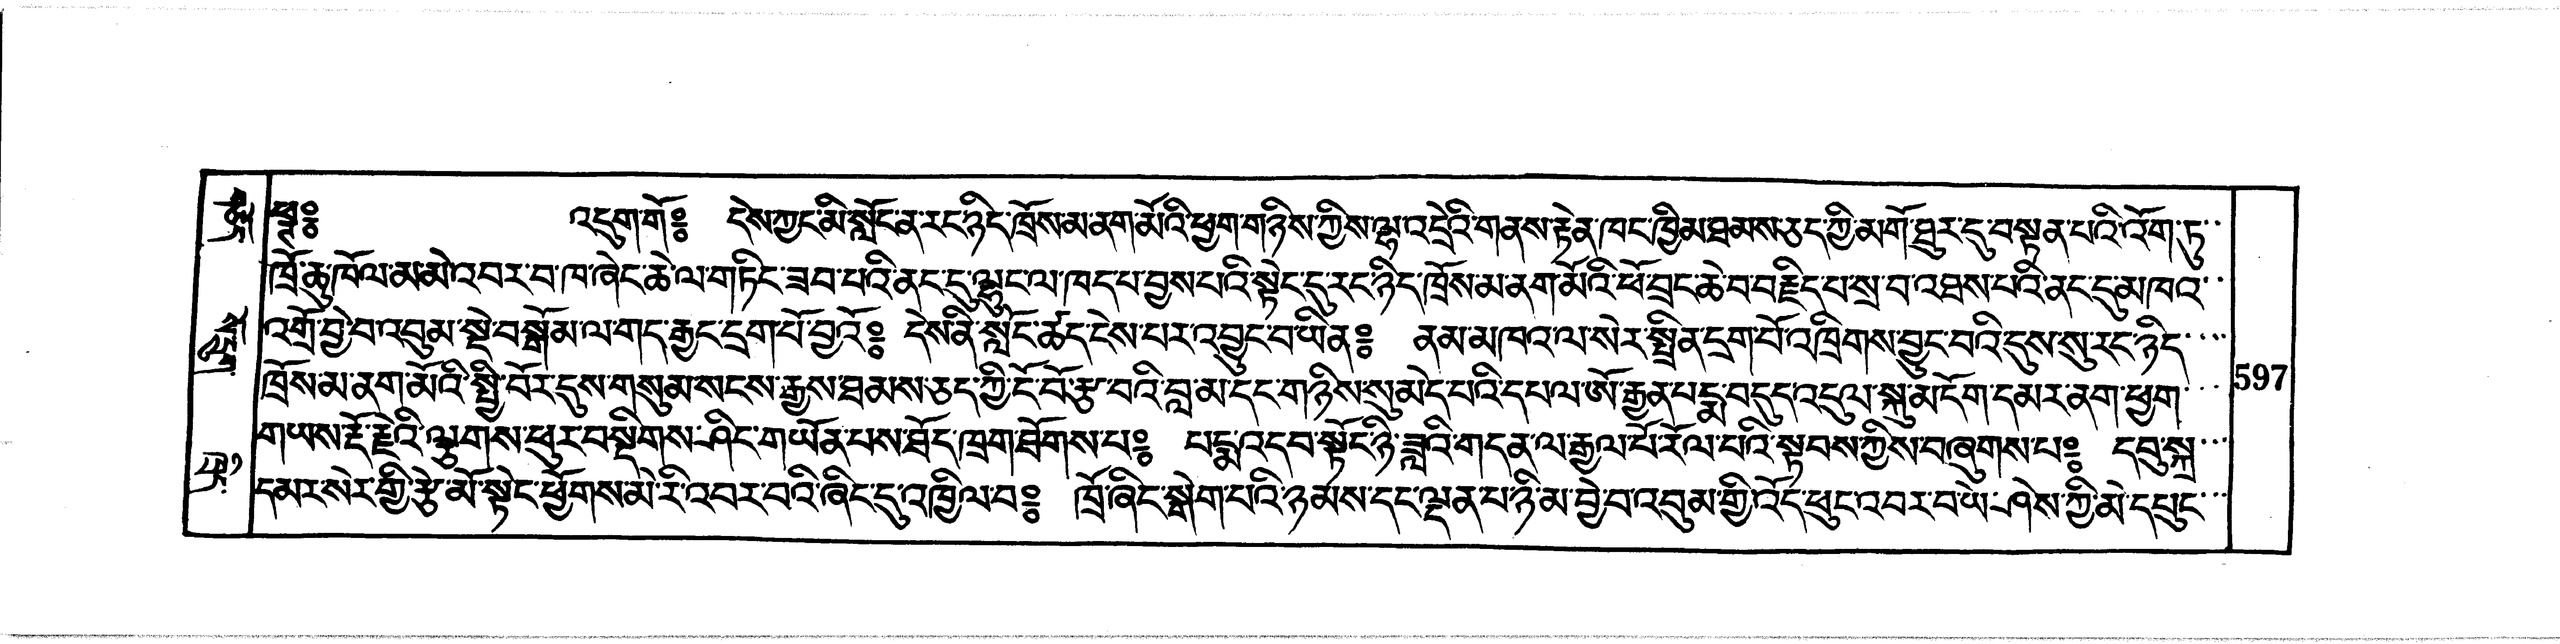 ཕཊ༔ འདུག་གོ༔ དེས་ཀྱང་མི་སློང་ན་རང་ཉིད་ཁྲོས་མ་ནག་མོའི་ཕྱག་གཉིས་ཀྱིས་ལྷ་འདྲེའི་གནས་རྟེན་ཁང་ཁྱིམ་ཐམས་ཅད་ཀྱི་མགོ་ཐུར་དུ་བསྟན་པའི་འོག་ཏུ
ཁྲོ་ཆུ་ཁོལ་མ་མེ་འབར་བ་ཁ་ཞེང་ཆེ་ལ་གཏིང་ཟབ་པའི་ནང་དུ་ལྷུང་ལ་ཁད་པ་བྱས་པའི་སྟེང་དུ་རང་ཉིད་ཁྲོས་མ་ནག་མོའི་ཕོ་བྲང་ཆེ་བ་བརྗིད་པ་སྲ་བ་འཐས་པའི་ནང་དུ་མཁའ
འགྲོ་བྱེ་བ་འབུམ་སྡེ་བསྒོམ་ལ་གད་རྒྱང་དྲག་པོ་བྱའོ༔ དེས་ནི་སློང་ཚད་ངེས་པར་འབྱུང་བ་ཡིན༔ ནམ་མཁའ་ལ་སེར་སྤྲིན་དྲག་པོ་འཁྲིགས་བྱུང་བའི་དུས་སུ་རང་ཉིད
ཁྲོས་མ་ནག་མོའི་སྤྱི་བོར་དུས་གསུམ་སངས་རྒྱས་ཐམས་ཅད་ཀྱི་ངོ་བོ་རྩ་བའི་བླ་མ་དང་གཉིས་སུ་མེད་པའི་དཔལ་ཨོ་རྒྱན་པདྨ་བདུད་འདུལ་སྐུ་མདོག་དམར་ནག་ཕྱག
གཡས་རྡོ་རྗེའི་ལྕགས་ཕུར་བསྡིགས་ཤིང་གཡོན་པས་ཐོད་ཁྲག་ཐོགས་པ༔ པདྨ་འདབ་སྟོང་ཉི་ཟླའི་གདན་ལ་རྒྱལ་པོ་རོལ་པའི་སྟབས་ཀྱིས་བཞུགས་པ༔ དབུ་སྐྲ
དམར་སེར་གྱི་རྩེ་མོ་སྟེང་ཕྱོགས་མེ་རི་འབར་བའི་ཞིང་དུ་འཁྱིལ་བ༔ ཁྲོ་ཞིང་སྒེག་པའི་ཉམས་དང་ལྡན་པ་ཉི་མ་བྱེ་བ་འབུམ་གྱི་འོད་ཕུང་འབར་བ་ཡེ་ཤེས་ཀྱི་མེ་དཔུང
597